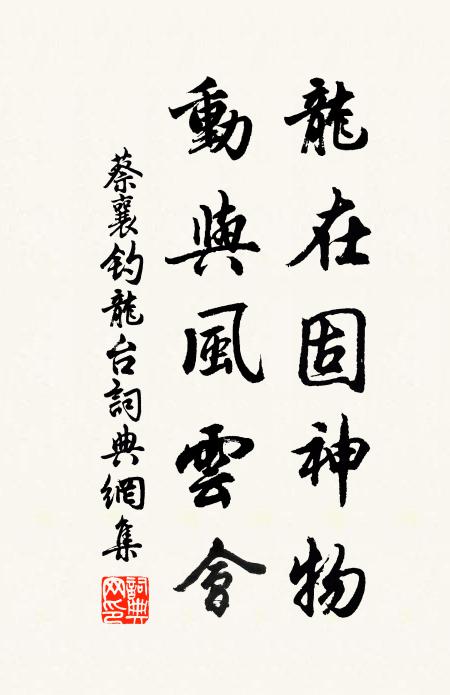 龍在固神物
動與風雲會
蔡襄釣龍台詞典網集
詞典
网印